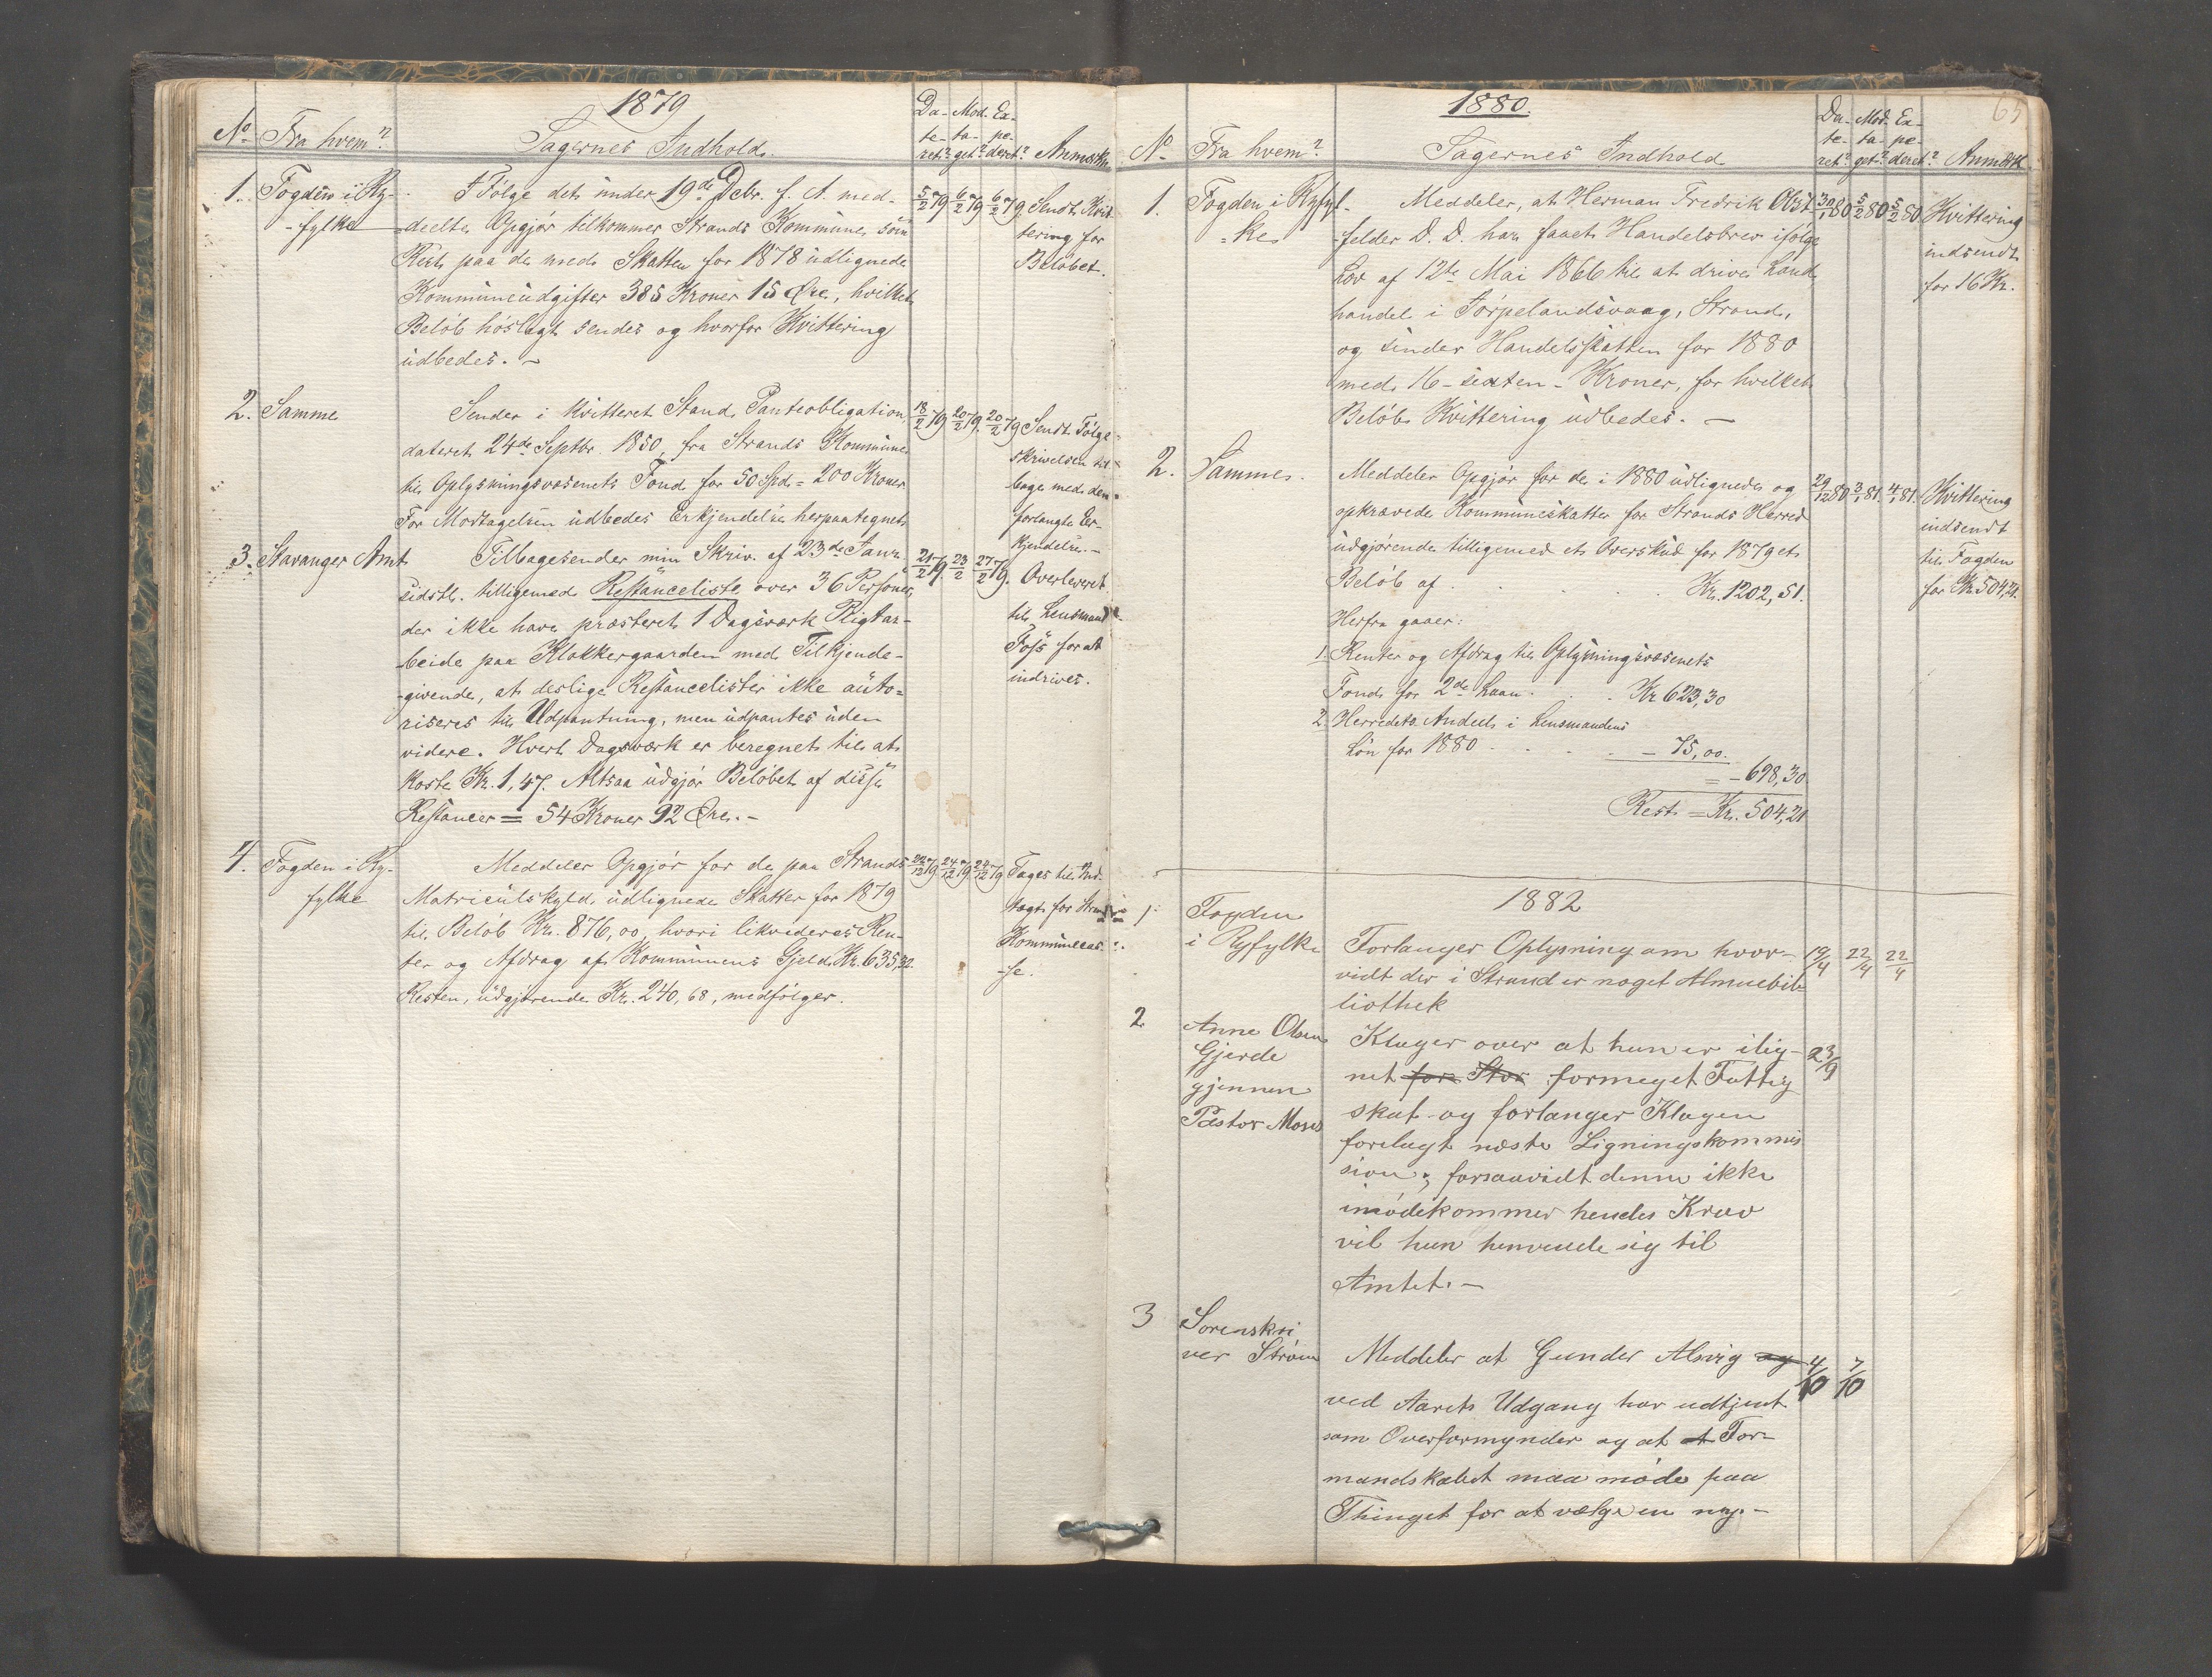 1879
No. Fra hvem? Sagernes Indhold. Da-te-ret? Mod-ta-get? Ex-pe-deret? Anmærkn
1. Fogden i Ry-
-fylke
I Følge det under 19de Decbr. f. A. med-
deelte Opgjør tilkommer Strands Kommune som
Rest paa de med Skatten for 1878 udlignede
Kommuneudgifter 385 Kroner 15 Øre, hvilket
Beløb høslagt sendes og hvorfor Kvittering
udbedes. –
5/2 79 6/2 79 6/2 79
Sendt Kvit-
tering for
Beløbet.
2. Samme
Sender i kvitteret Stand Panteobligation,
dateret 24de Septbr. 1850, fra Strands Kommune
til Oplysningsvæsenets Fond for 50 Spd = 200 Kroner
For Modtagelsen udbedes Erkjendelse herpaategnet
18/2 79 20/2 79. 20/2 79
Sendt Følge-
skrivelsen til-
bage med den
forlangte Er-
kjendelse. –
3. Stavanger Amt
Tilbagesender min Skriv. af 23de Janr.
sidstl. tilligemed Restanceliste over 36 Personer,
der ikke have præsteret 1 Dagsværk Pligtar-
beide paa Klokkergaarden med Tilkjende-
-givende, at deslige Restancelister ikke auto-
riseres til Udpantning, men udpantes uden
videre. Hvert Dagsværk er beregnet til at
koste Kr. 1,47. Altsaa udgjør Beløbet af disse
Restancer = 54 Kroner 92 Øre. –
21/2 79. 23/2 27/2 79.
Overleveret
til Lensmand
Fojs for at
indrives.
4. Fogden i Ry-
fylke
Meddeler Opgjør for de paa Strands
Matriculskyld udlignede Skatter for 1879
til Beløb Kr. 876,00, hvori likvideres Ren-
ter og Afdrag af Kommunens Gjeld Kr. 635,32.
Resten, udgjørende Kr. 240,68, medfølger.
22/12 79 24/12 79 24/12 79
Tages til Ind-
tægt for Strands
Kommunecas-
-se.
65
1880.
No. Fra hvem? Sagernes Indhold Da-te-ret? Mod-ta-get? Ex-pe-deret? Anmærk
1. Fogden i Ryfyl-
-ke
Meddeler, at Herman Fredrik Obst-
felder D. D. har faaet Handelsbrev ifølge
Lov af 12te Mai 1866 til at drive Land-
handel i Jørpelandsvaag, Strand,
og sender Handelsskatten for 1880
med 16 – sexten – Kroner, for hvilket
Beløb Kvittering udbedes. –
30/1 80 5/2 80 5/2 80
Kvittering
indsendt
for 16 Kr.
2. Samme.
Meddeler Opgjør for de i 1880 udlignede og
opkrævede Kommuneskatter for Strands Herred
udgjørende tilligemed et Overskud for 1879 et
Beløb af . . . . Kr. 1202,51.
Herfra gaaer:
1. Renter og Afdrag til Oplysningsvæsenets
Fond for 2de Laan . . . Kr 623,30
2. Herredets Andeel i Lensmandens
Løn for 1880 . . . . – 75,00.
= – 698,30.
Rest = Kr. 504,21
29/12 80 3/1 81. 4/1 81.
Kvittering
indsendt
til Fogden
for Kr 504,21.
1882
1. Fogden
i Ryfylke
Forlanger Oplysning om hvor-
vidt der i Strand er noget Almuebib-
liothek
19/4 22/4 22/4
2 Anne Olsen
Gjerde
gjennem
Pastor Moses
Klager over at hun er ilig-
net for Stor formeget Fattig
skat og forlanger Klagen
forelagt næste Ligningskommis
sion; forsaavidt denne ikke
imødekommer hendes Krav
vil hun henvende sig til
Amtet. –
23/9
3 Sorenskri
ver Strøm
Meddeler at Gunder Alsvig og
ved Aarets Udgang har udtjent
som Overformynder og at at For-
mandskabet maa møde paa
Thinget for at vælge en ny. –
4/10 7/10